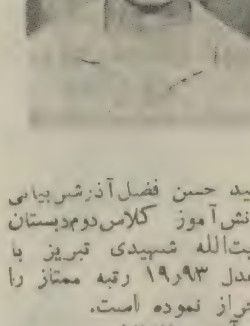 ید حسن فضل آذرشربیانی
انش‌آموز کلاس دوم دبستان
یت‌الله شهیدی تبریز با
عدل ۱۹٫۹۳ رتبه ممتاز را
راز نموده است.